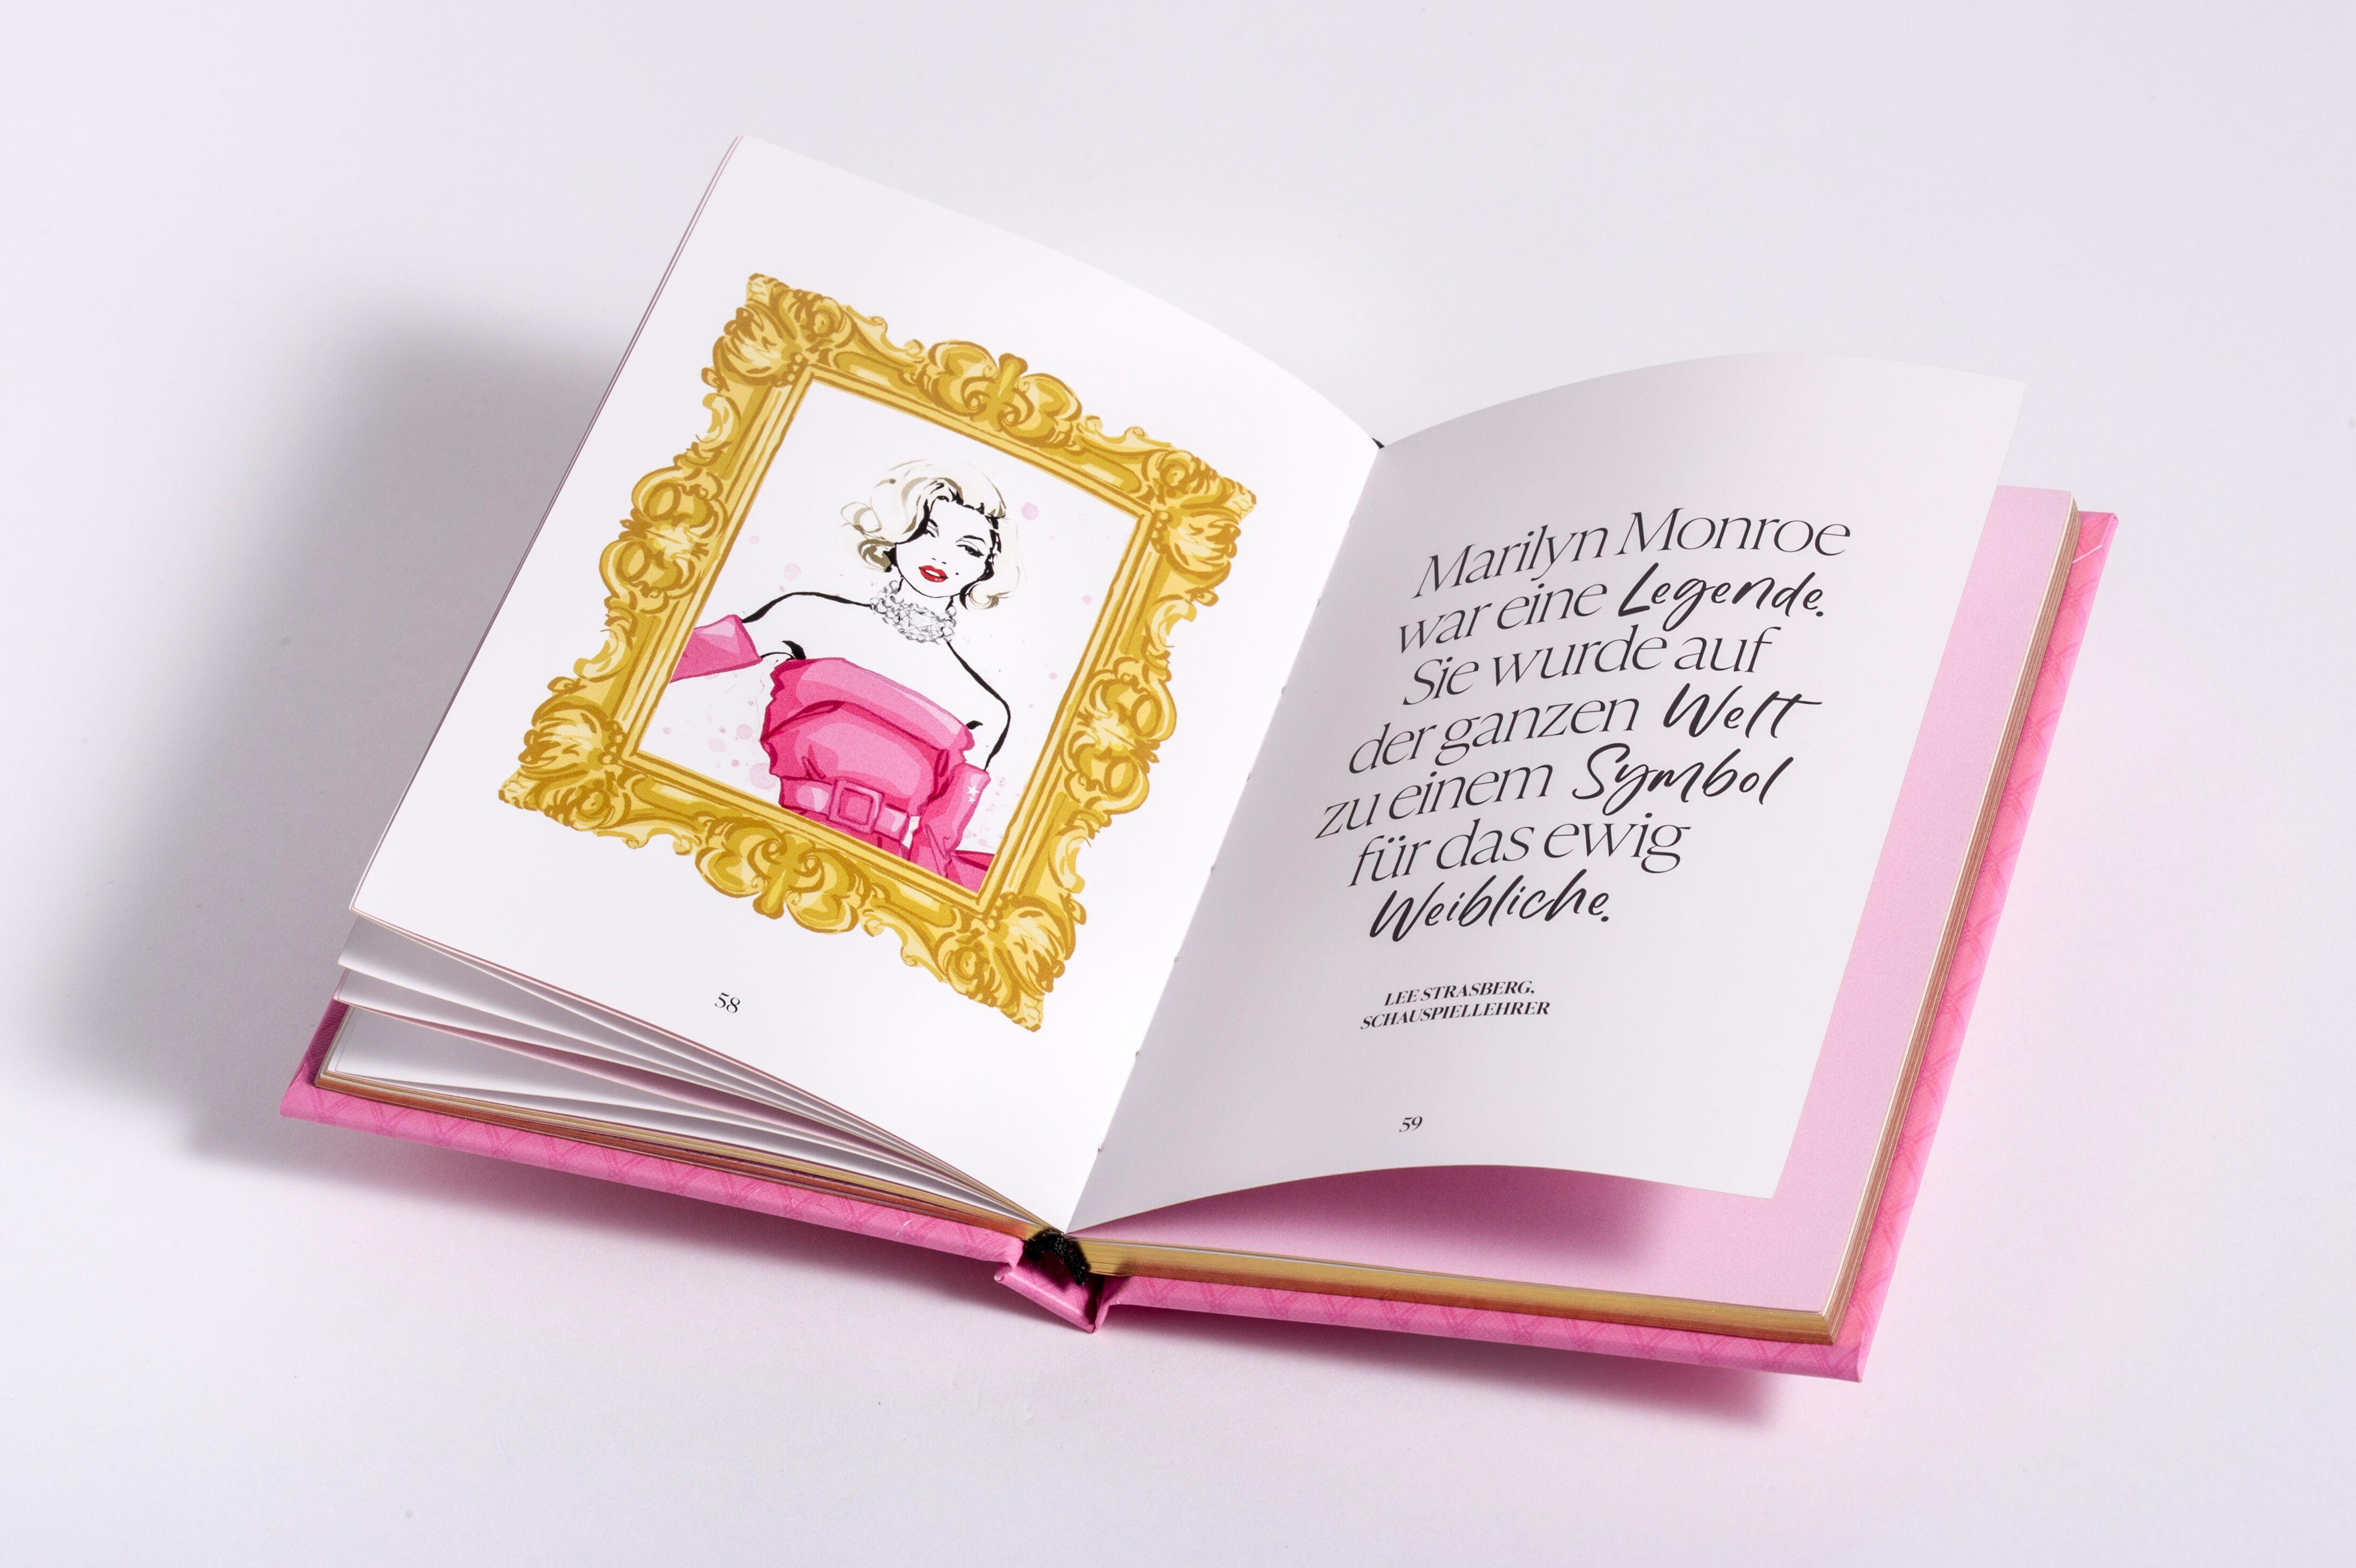 58
Marilyn Monroe
war eine Legende.
Sie wurde auf
der ganzen Welt
zu einem Symbol
für das ewig
Weibliche.
LEE STRASBERG,
SCHAUSPIELLEHRER
59